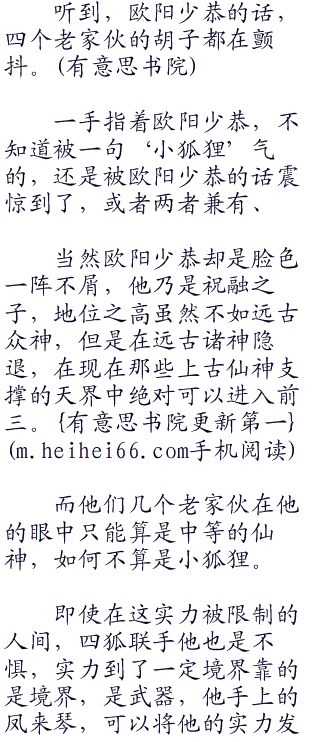 听到，欧阳少恭的话，
四个老家伙的胡子都在颤
抖。(有意思书院)
一手指着欧阳少恭，不
知道被一句‘小狐狸’气
的，还是被欧阳少恭的话震
惊到了，或者两者兼有、
当然欧阳少恭却是脸色
一阵不屑，他乃是祝融之
子，地位之高虽然不如远古
众神，但是在远古诸神隐
退，在现在那些上古仙神支
撑的天界中绝对可以进入前
三。{有意思书院更新第一}
(m.heihei66.com手机阅读)
而他们几个老家伙在他
的眼中只能算是中等的仙
神，如何不算是小狐狸。
即使在这实力被限制的
人间，四狐联手他也是不
惧，实力到了一定境界靠的
是境界，是武器，他手上的
凤来琴，可以将他的实力发